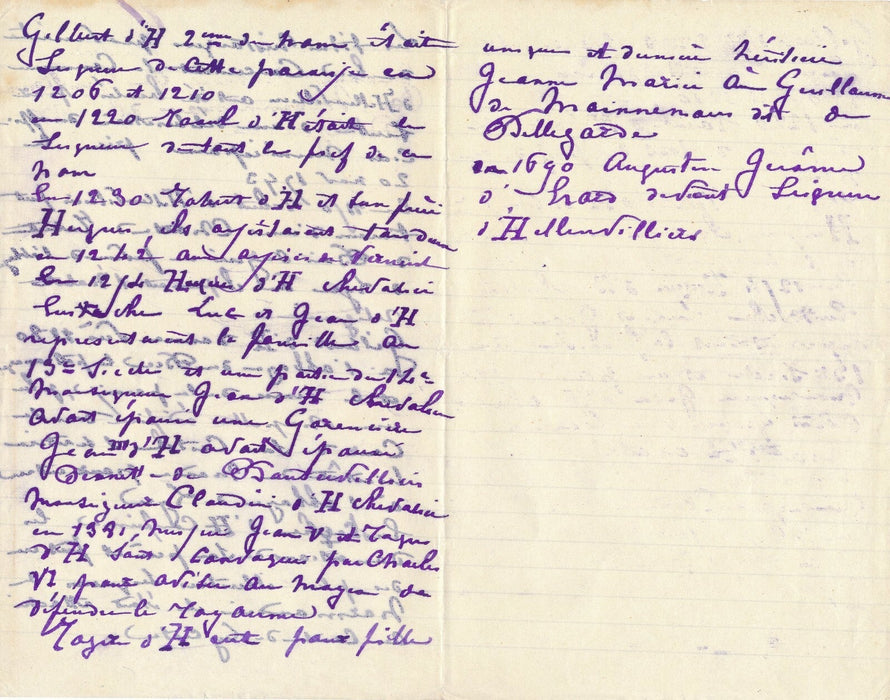 Gilbert d'H 2eme du nom était
Seigneur de cette paroisse en
1206 et 1210
en 1220 Raoul d'H était le
Seigneur du tout le fief de ce
nom
En 1230 Robert d'H et son frère
Hugues, ils assistaient tous deux
en 1242 aux assises de Verneuil
En 12 Hugues d'H chevalier
Eustache Luc et Jean d'H
représentèrent la famille au
13e Siècle et une partie du 14e
Monseigneur Jean d'H chevalier
avait épousé une Garencière
Jean III d'H avait épousé
de
Monseigneur Claudin d'H chevalier
en 1391, Jean V et Roger
d'H sont convoqués par Charles
VI pour aviser au moyen de
défendre le royaume
Roger d'H eut pour fille
unique et dernière héritière
Jeanne Marie à Guillaume
de Mainnemars dit de
Bellegarde
en 1690 Augustin Jérôme
d'Erard devient Seigneur
d'Hellenvilliers